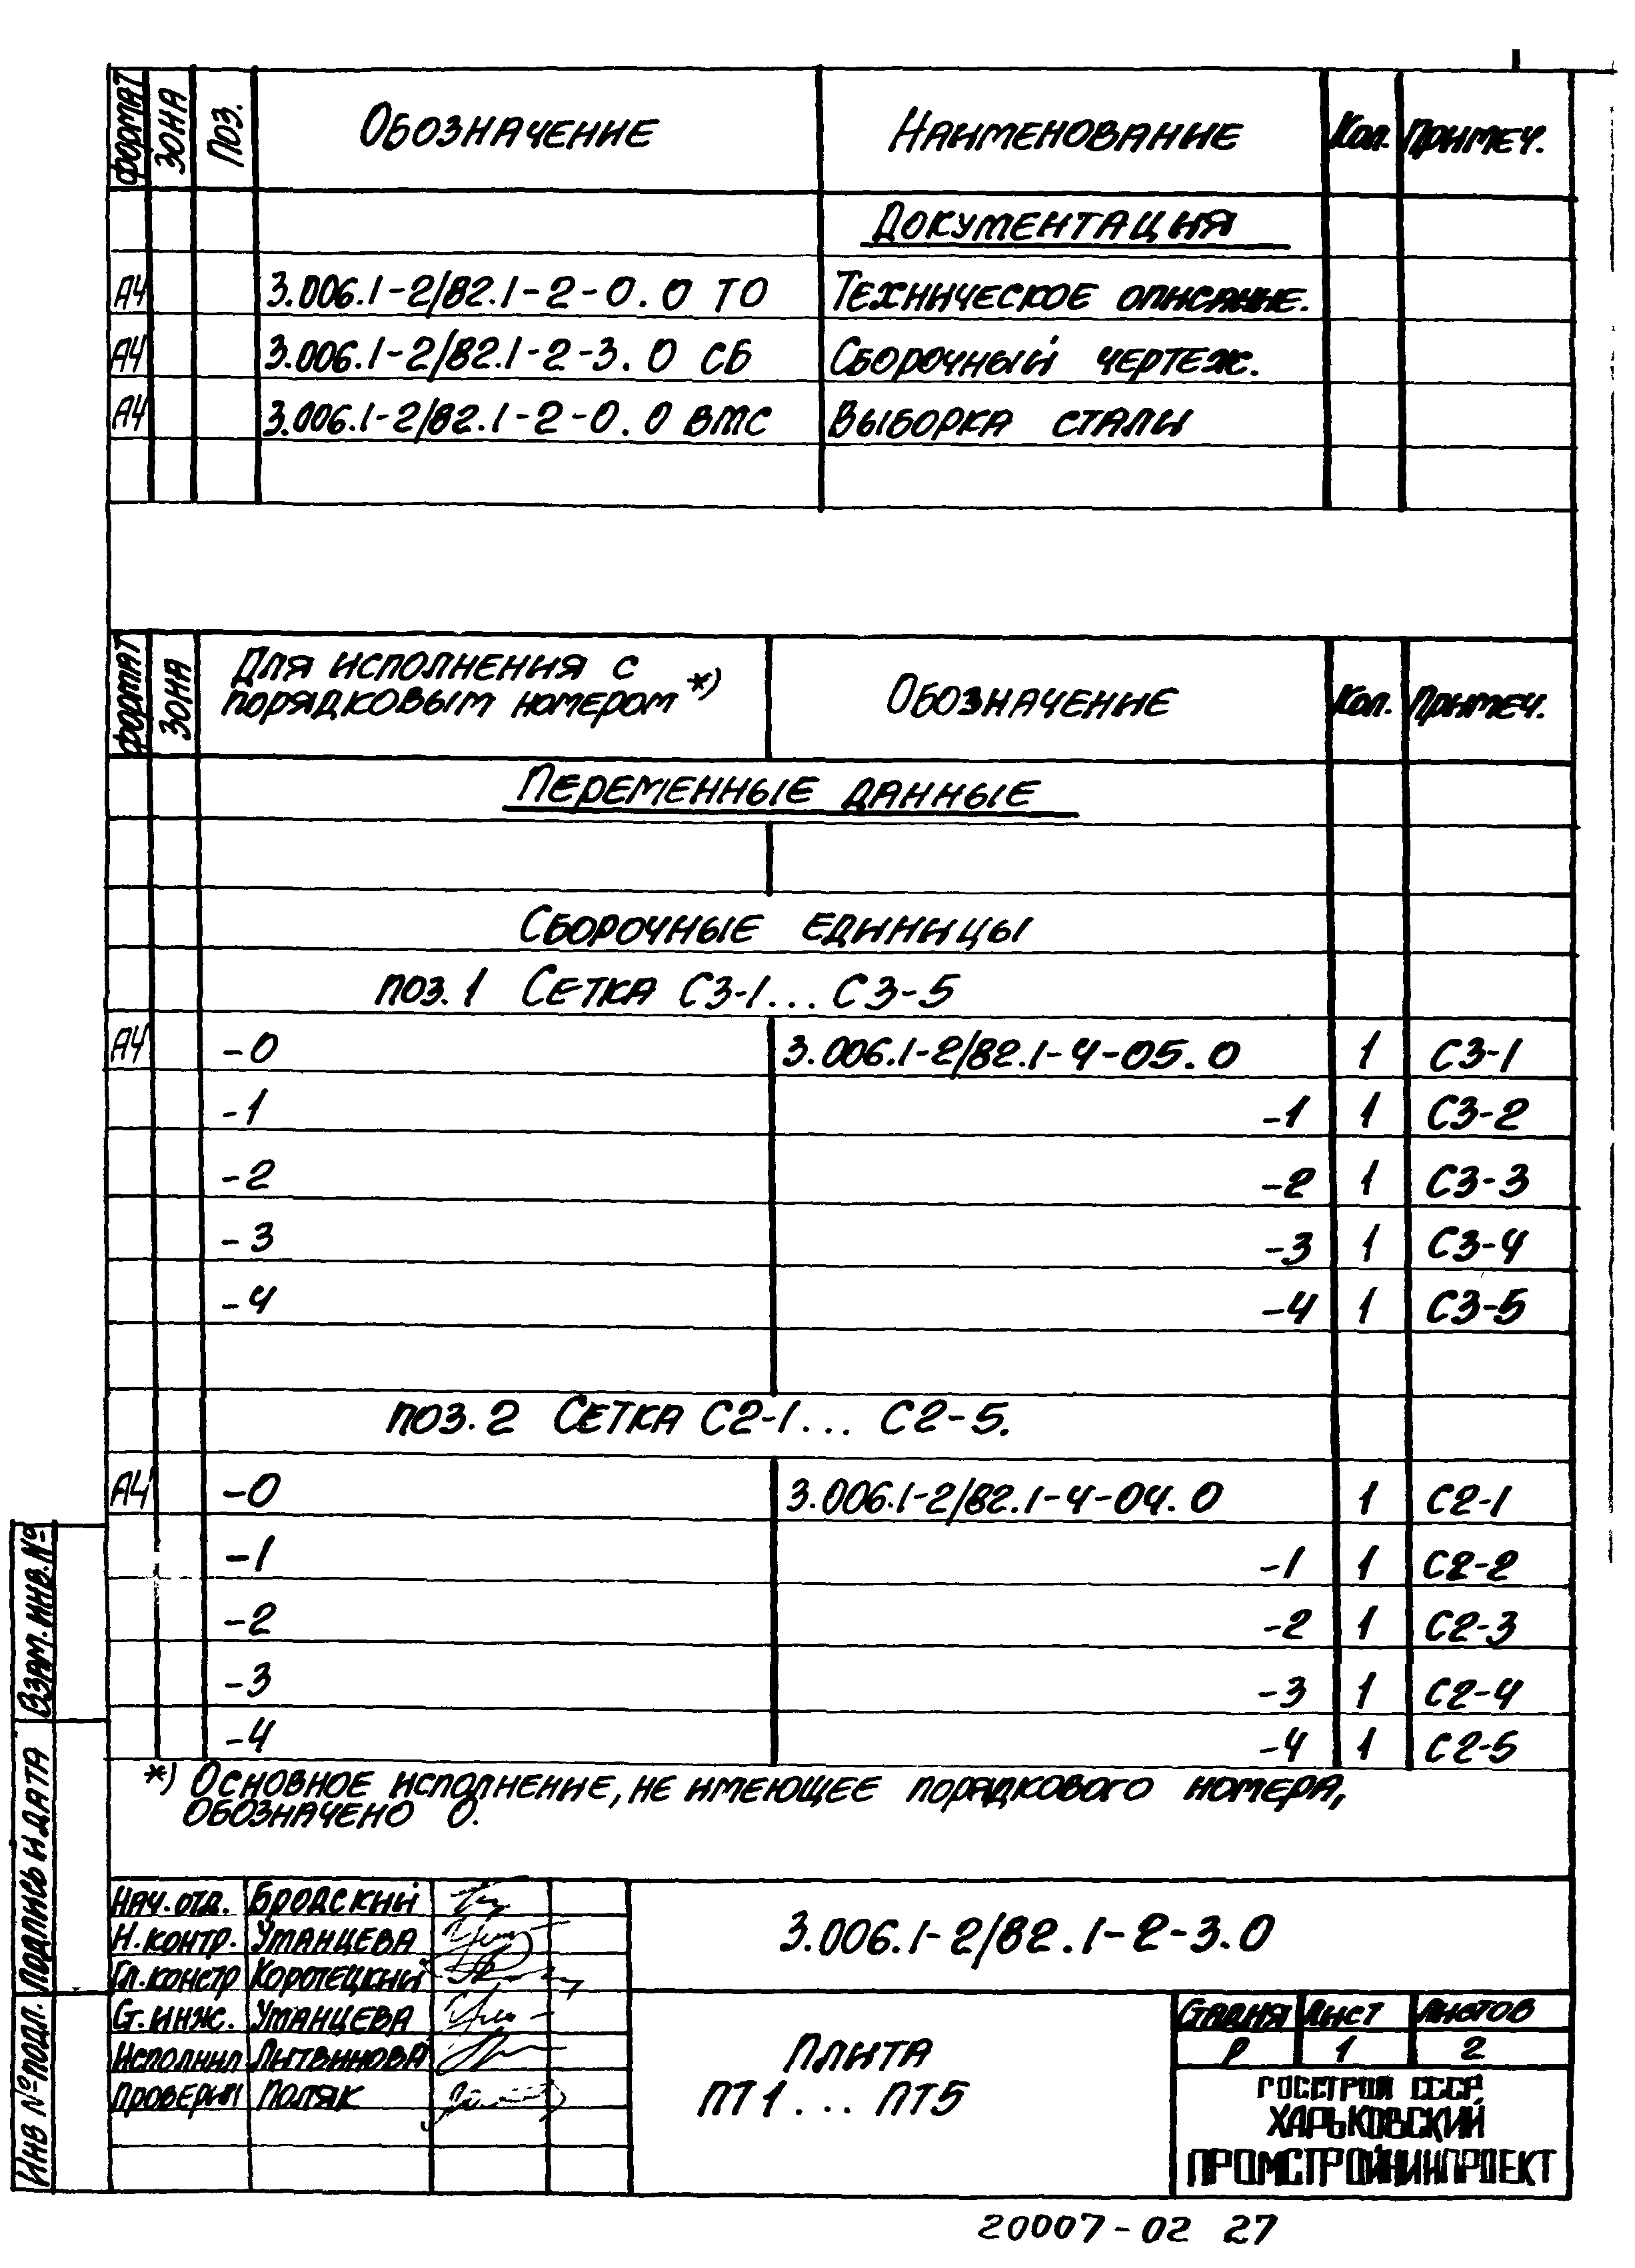 Формат Зона Поз. Обозначение Наименование Кол. Примеч.
Документация
А4 3.006.1-2/82.1-2-0.0 ТО Техническое описание.
А4 3.006.1-2/82.1-2-3.0 СБ Сборочный чертеж.
А4 3.006.1-2/82.1-2-0.0 ВМС Выборка стали
Формат Зона Для исполнения с порядковым номером *) Обозначение Кол. Примеч.
Переменные данные
Сборочные единицы
поз. 1 Сетка С3-1... С3-5
А4 -0 3.006.1-2/82.1-4-05.0 1 С3-1
-1 -1 1 С3-2
-2 -2 1 С3-3
-3 -3 1 С3-4
-4 -4 1 С3-5
поз. 2 Сетка С2-1... С2-5.
А4 -0 3.006.1-2/82.1-4-04.0 1 С2-1
-1 -1 1 С2-2
-2 -2 1 С2-3
-3 -3 1 С2-4
-4 -4 1 С2-5
*) Основное исполнение, не имеющее порядкового номера,
обозначено 0.
Взам. инв. №
Подпись и дата
Инв № подл.
Нач. отд. Бродский
Н. контр. Уманцева
Гл. констр Коротецкий
Ст. инж. Уманцева
Исполнил Литвинова
Проверил Поляк
3.006.1-2/82.1-2-3.0
Плита
ПТ1... ПТ5
Стадия Лист Листов
Р 1 2
ГОССТРОЙ СССР
ХАРЬКОВСКИЙ
ПРОМСТРОЙНИИПРОЕКТ
20007-02 27